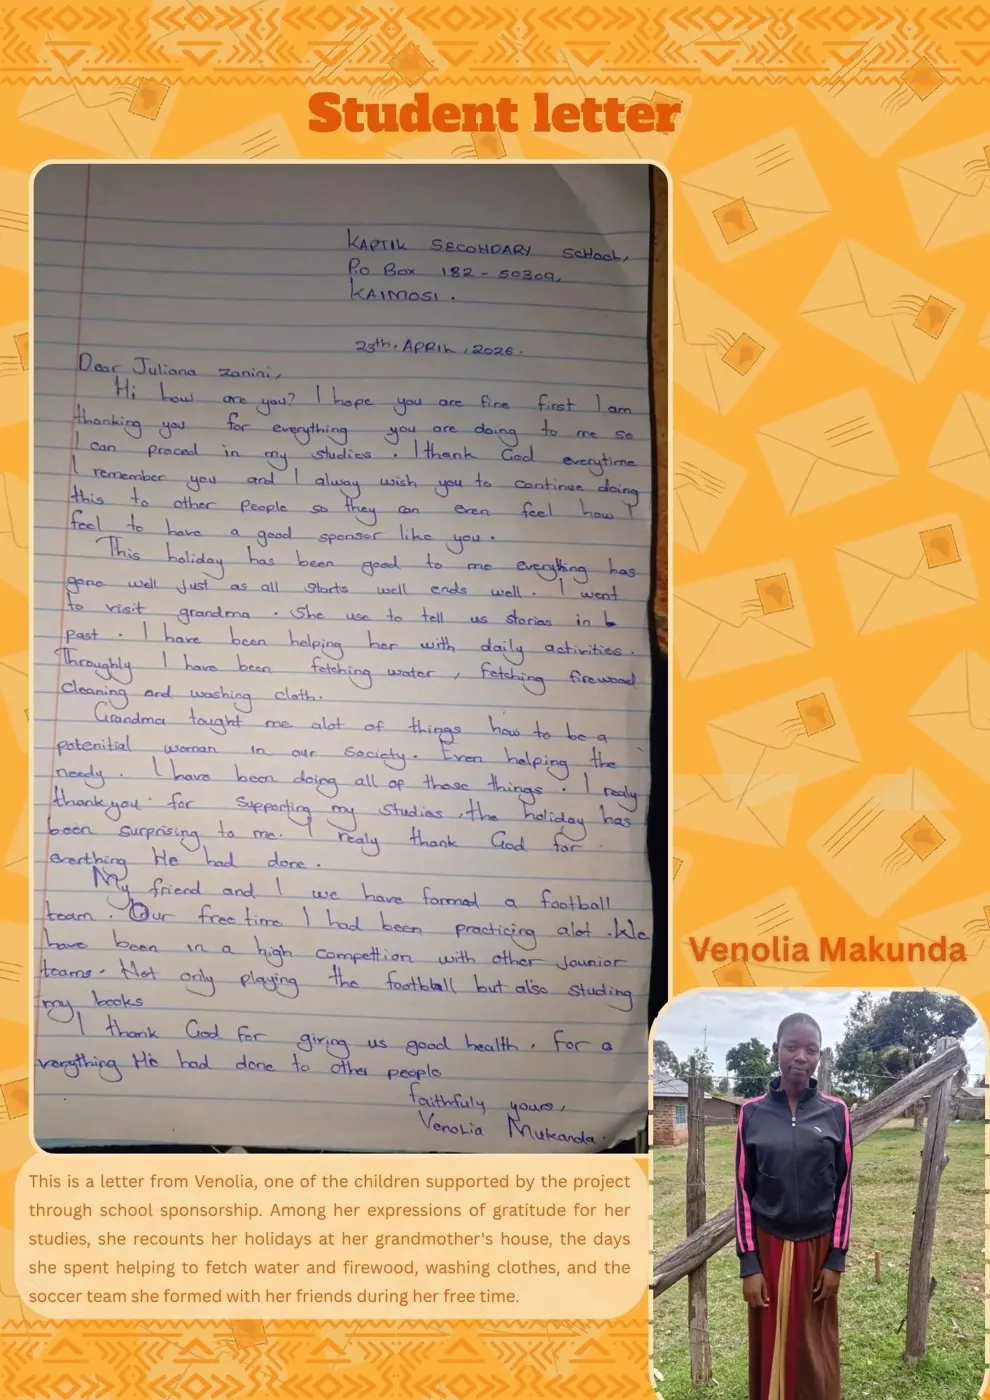 Student letter
KAPTIK SECONDARY SCHOOL,
P.o Box 182 - 50309,
KAIMOSI.
23th. APRIL, 2026.
Dear Juliana Zanini,
Hi how are you? I hope you are fine first I am
thanking you for everything you are doing to me so
I can proced in my studies. I thank God everytime
I remember you and I alway wish you to continue doing
this to other people so they can even feel how I
feel to have a good sponsor like you.
This holiday has been good to me everything has
gone well just as all starts well ends well. I went
to visit grandma. She use to tell us stories in
past. I have been helping her with daily activities.
Throughly I have been fetching water, fetching firewood
cleaning and washing cloth.
Grandma taught me alot of things how to be a
potenitial woman in our society. Even helping the
needy. I have been doing all of those things. I realy
thank you for supporting my studies, the holiday has
been surprising to me. I realy thank God for
everthing He had done.
My friend and I we have formed a football
team. Our free time I had been practicing alot. We
have been in a high compettion with other jounior
teams. Not only playing the football but also studing
my books
I thank God for giving us good health. For a
verything He had done to other people
faithfuly yours,
Venolia Mukanda.
Venolia Makunda
This is a letter from Venolia, one of the children supported by the project
through school sponsorship. Among her expressions of gratitude for her
studies, she recounts her holidays at her grandmother's house, the days
she spent helping to fetch water and firewood, washing clothes, and the
soccer team she formed with her friends during her free time.